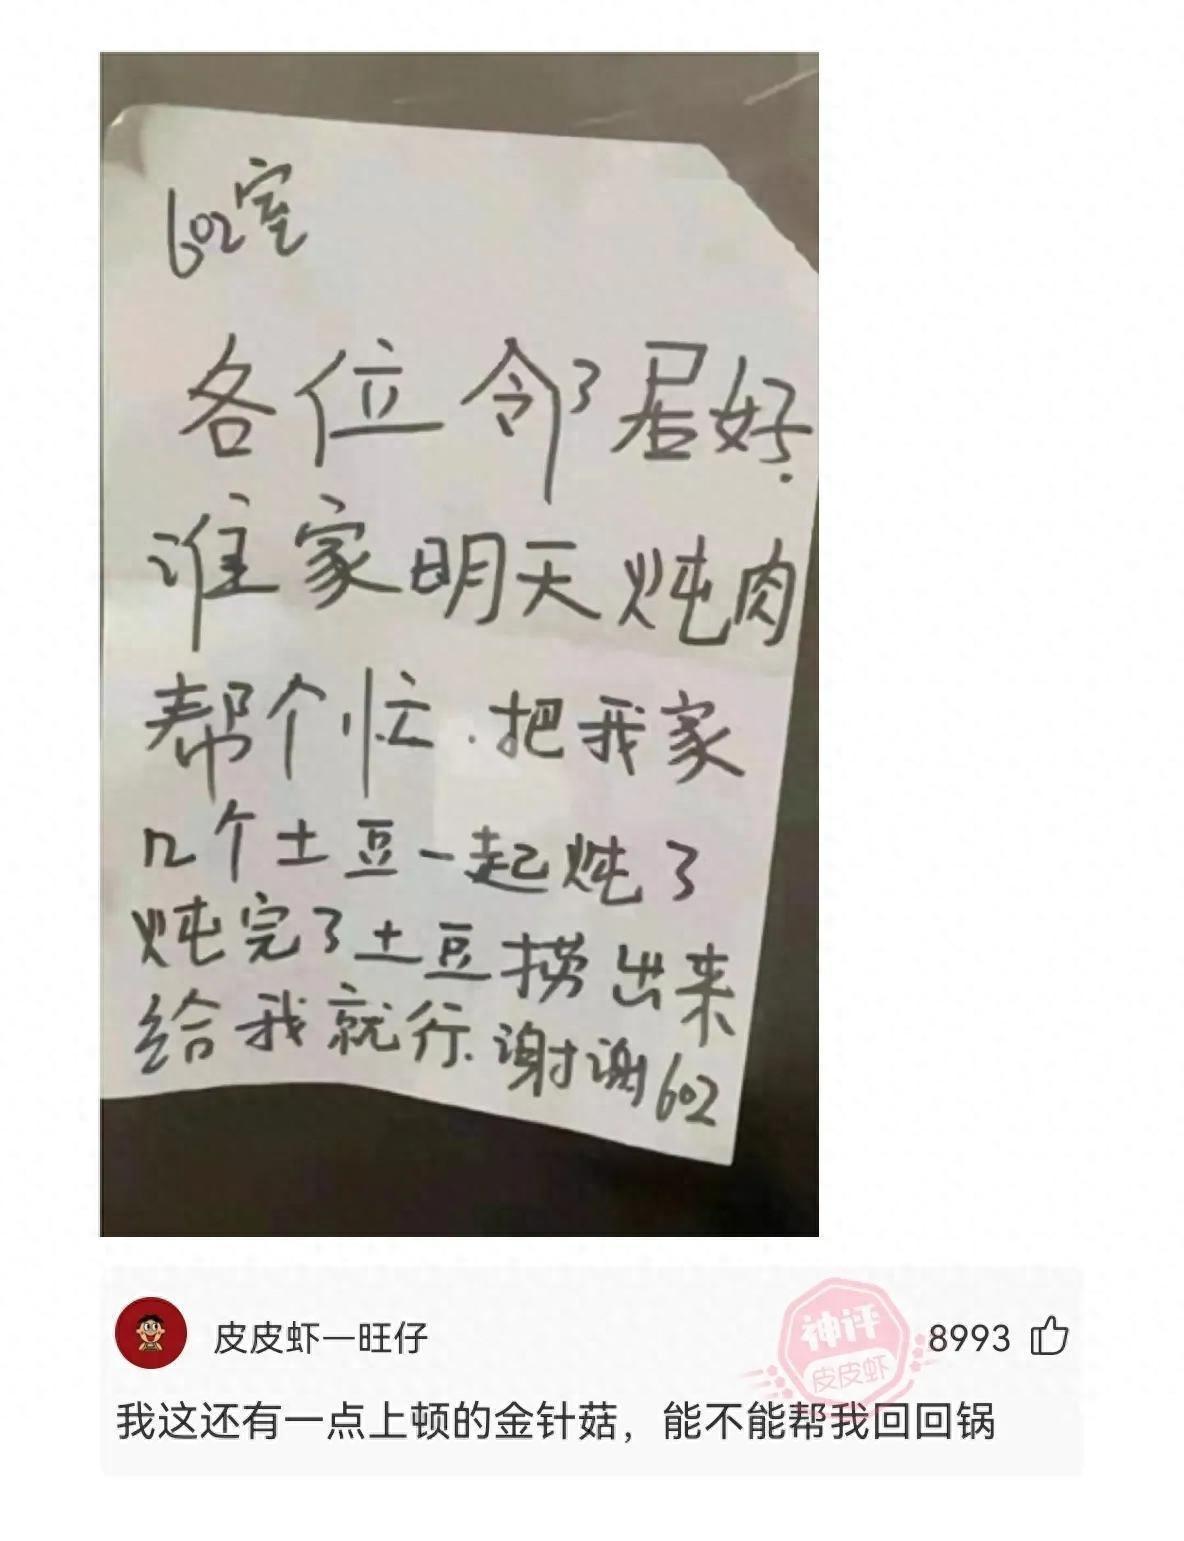 602室
各位邻居好.
谁家明天炖肉
帮个忙.把我家
几个土豆一起炖了
炖完了土豆捞出来
给我就行.谢谢602
皮皮虾一旺仔
神评
皮皮虾
8993
我这还有一点上顿的金针菇，能不能帮我回回锅